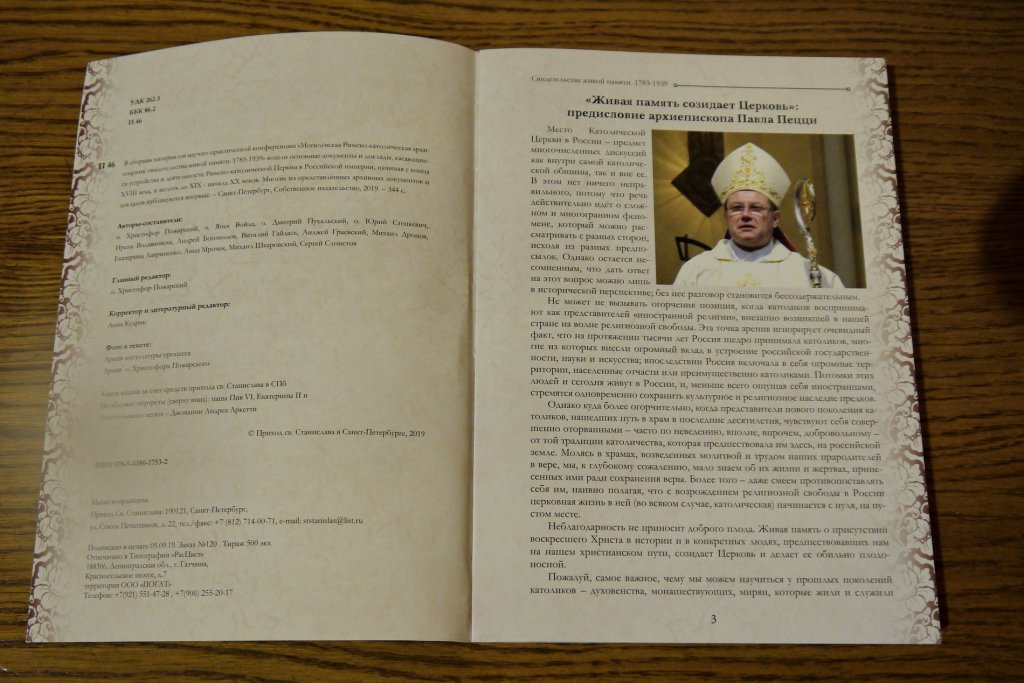 УДК 262.3
ББК 86.2
П 46
П 46
В сборник материалов научно-практической конференции «Могилёвская Римско-католическая архи-
епархия: свидетельства живой памяти. 1783-1939» вошли основные документы и доклады, касающие-
ся устройства и деятельности Римско-католической Церкви в Российской империи, начиная с конца
XVIII века, и вплоть до XIX - начала XX веков. Многие из представленных архивных документов и
докладов публикуются впервые. – Санкт-Петербург, Собственное издательство, 2019. – 344 с.
Авторы-составители:
о. Христофор Пожарский, о. Яцек Войда, о. Дмитрий Пухальский, о. Юрий Стецкевич,
Ирена Водзяновска, Андрей Богомолов, Виталий Гайлась, Анджей Граевский, Михаил Дронов,
Екатерина Лавриненко, Анна Мрочек, Михаил Шкаровский, Сергей Слоистов
Главный редактор:
о. Христофор Пожарский
Корректор и литературный редактор:
Анна Кудрик
Фото в тексте:
Архив постулатуры процесса
Архив о. Христофора Пожарского
Книга издана за счет средств прихода св. Станислава в СПб
На обложке портреты (сверху вниз): папы Пия VI, Екатерины II и
апостольского легата – Джованни Андреа Аркетти
© Приход св. Станислава в Санкт-Петербурге, 2019
ISBN 978-5-4386-1753-2
Наши координаты:
Приход Св. Станислава: 190121, Санкт-Петербург,
ул. Союза Печатников, д. 22, тел./факс: +7 (812) 714-00-71, e-mail: ststanislas@list.ru
Подписано в печать 05.09.19. Заказ №120 . Тираж 500 экз.
Отпечатано в Типографии «РасЦвет»
188306, Ленинградская обл., г. Гатчина,
Красносельское шоссе, д.7
территория ООО «ПОГАТ»
Телефон: +7(921) 551-47-28 , +7(906) 255-20-17
Свидетельства живой памяти. 1783-1939
«Живая память созидает Церковь»:
предисловие архиепископа Павла Пецци
Место Католической
Церкви в России – предмет
многочисленных дискуссий
как внутри самой католиче-
ской общины, так и вне ее.
В этом нет ничего непра-
вильного, потому что речь
действительно идёт о слож-
ном и многогранном фено-
мене, который можно рас-
сматривать с разных сторон,
исходя из разных предпо-
сылок. Однако остается не-
сомненным, что дать ответ
на этот вопрос можно лишь
в исторической перспективе; без нее разговор становится бессодержательным.
Не может не вызывать огорчения позиция, когда католиков воспринима-
ют как представителей «иностранной религии», внезапно возникшей в нашей
стране на волне религиозной свободы. Эта точка зрения игнорирует очевидный
факт, что на протяжении тысячи лет Россия щедро принимала католиков, мно-
гие из которых внесли огромный вклад в устроение российской государствен-
ности, науки и искусства; впоследствии Россия включала в себя огромные тер-
ритории, населенные отчасти или преимущественно католиками. Потомки этих
людей и сегодня живут в России, и, меньше всего ощущая себя иностранцами,
стремятся одновременно сохранить культурное и религиозное наследие предков.
Однако куда более огорчительно, когда представители нового поколения ка-
толиков, нашедших путь в храм в последние десятилетия, чувствуют себя совер-
шенно оторванными – часто по неведению, вполне, впрочем, добровольному –
от той традиции католичества, которая предшествовала им здесь, на российской
земле. Молясь в храмах, возведенных молитвой и трудом наших прародителей
в вере, мы, к глубокому сожалению, мало знаем об их жизни и жертвах, прине-
сенных ими ради сохранения веры. Более того – даже смеем противопоставлять
себя им, наивно полагая, что с возрождением религиозной свободы в России
церковная жизнь в ней (во всяком случае, католическая) начинается с нуля, на пу-
стом месте.
Неблагодарность не приносит доброго плода. Живая память о присутствии
воскресшего Христа в истории и в конкретных людях, предшествовавших нам
на нашем христианском пути, созидает Церковь и делает ее обильно плодо-
носной.
Пожалуй, самое важное, чему мы можем научиться у прошлых поколений
католиков – духовенства, монашествующих, мирян, которые жили и служили
3